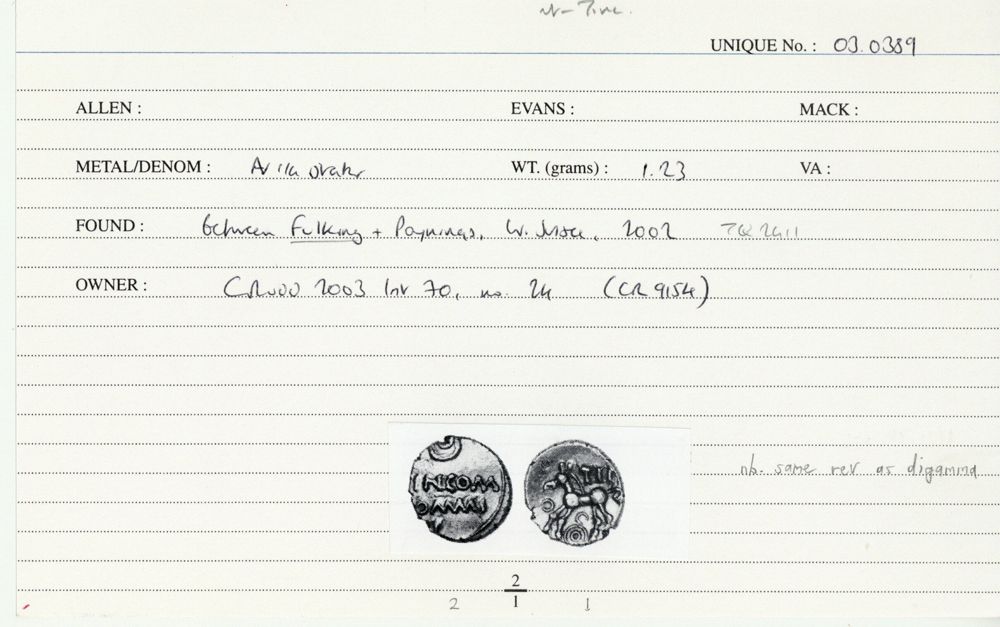 UNIQUE No. : 03.0389
ALLEN : EVANS : MACK :
METAL/DENOM : WT. (grams) : 1.23 VA :
FOUND : between Fulking + Poynings, W. Sussex, 2002 TQ 2411
OWNER : 2003 Inv 70, no. 24 (CR 9154)
TIN
nb. same rev as digamma
2
2 1 1